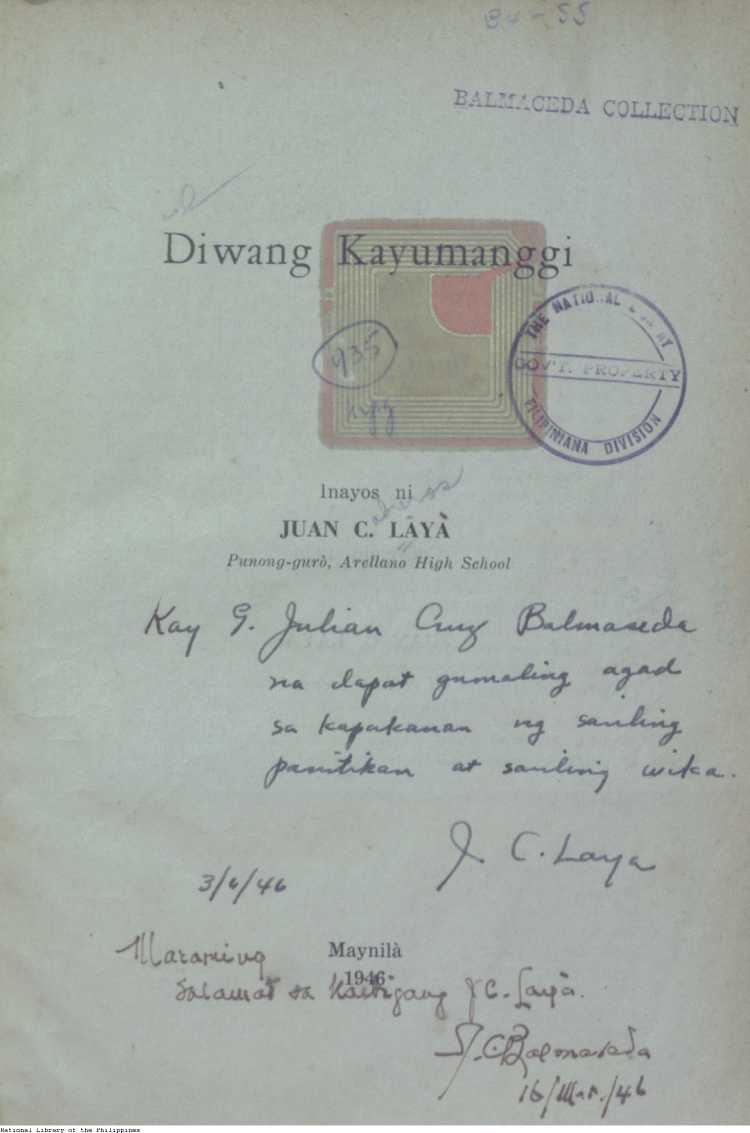 B4-55
BALMACEDA COLLECTION
Diwang Kayumanggi
THE NATIONAL
GOV'T. PROPERTY
FILIPINIANA DIVISION
935
Inayos ni
JUAN C. LAYÀ
Punong-gurò, Arellano High School
Kay G. Julian Cruz Balmaseda
na dapat gumaling agad
sa kapakanan ng sariling
panitikan at sariling wika.
J. C. Laya
3/6/46
Maynilà
1946
Maraming
salamat sa kaibigang J C. Layà.
J. C. Balmaseda
16/Mar./46
National Library of the Philippines